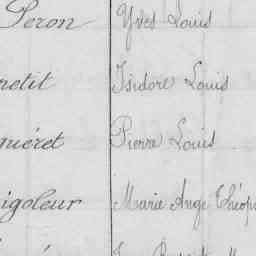 Peron Yves Louis
netit Isidore Louis
guéret Pierre Louis
rigoleur Marie Ange Théop